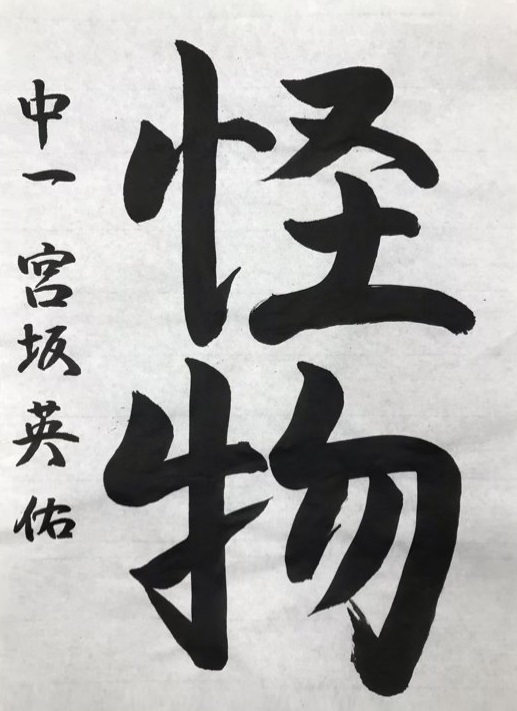 怪物
中一 宮坂英佑